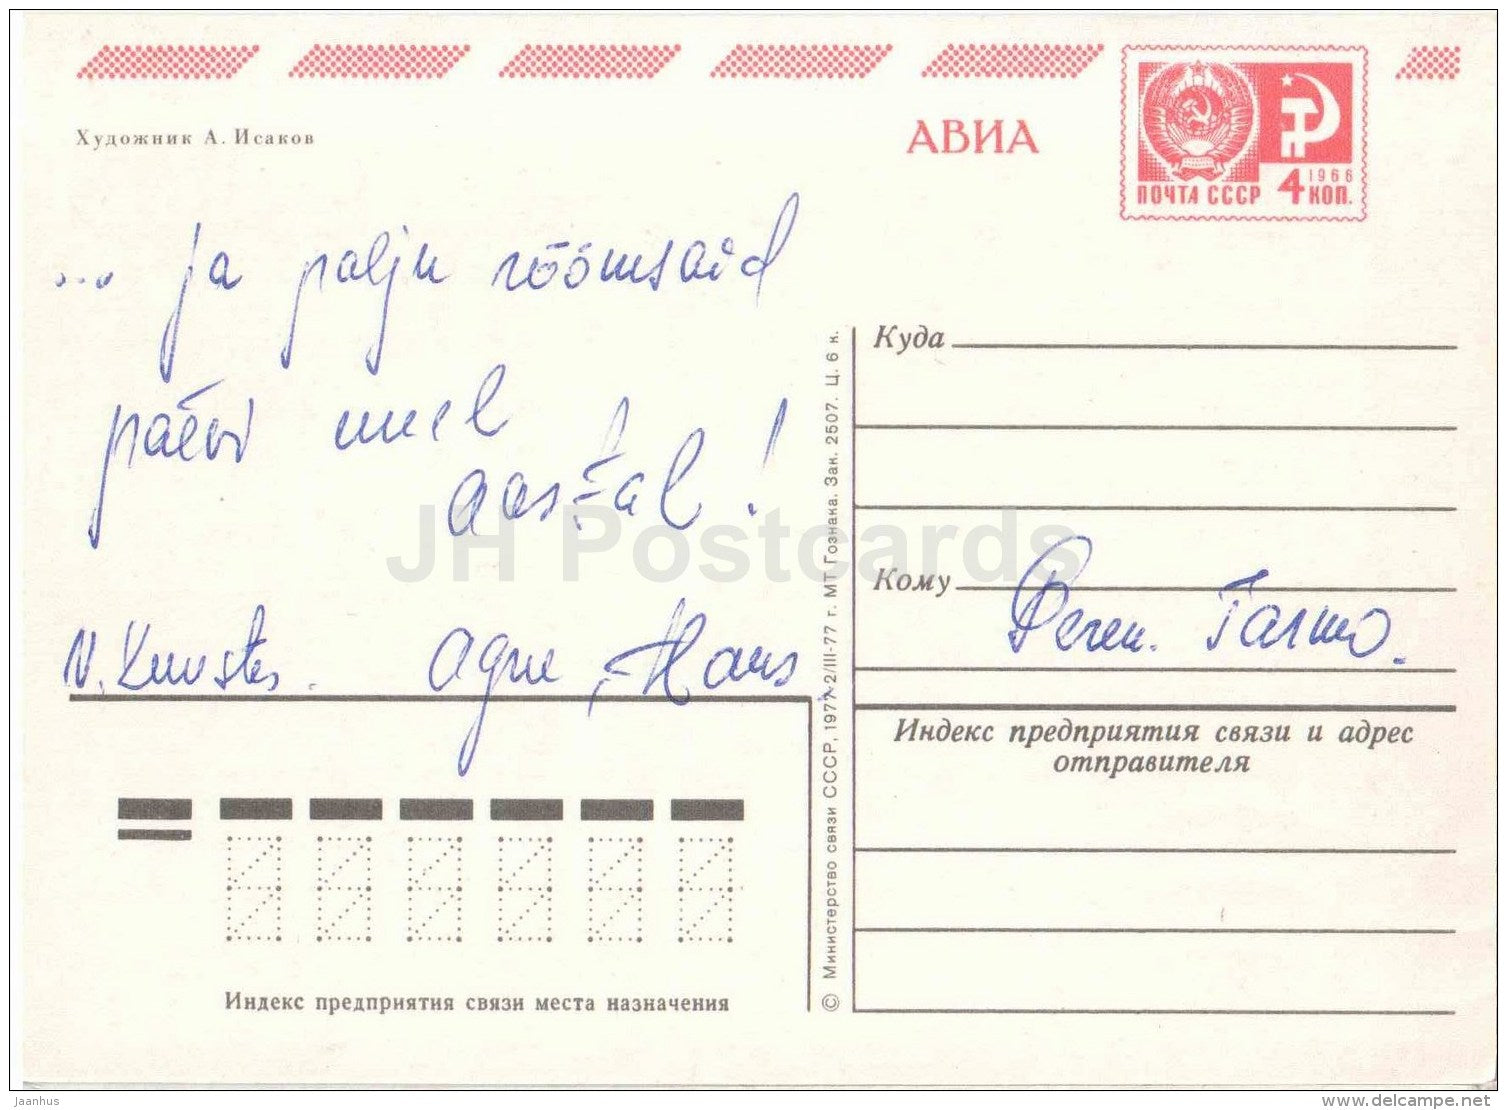 Художник А. Исаков
АВИА
1966
ПОЧТА СССР 4 КОП.
... ja palju rõõmsaid
päevi uuel
aastal!
Agne, Hans
Куда
Кому
Индекс предприятия связи и адрес
отправителя
Индекс предприятия связи места назначения
© Министерство связи СССР, 1977 2/III-77 г. МТ Гознака. Зак. 2507. Ц. 6 к.
JH Postcards
Jaanhus
www.delcampe.net